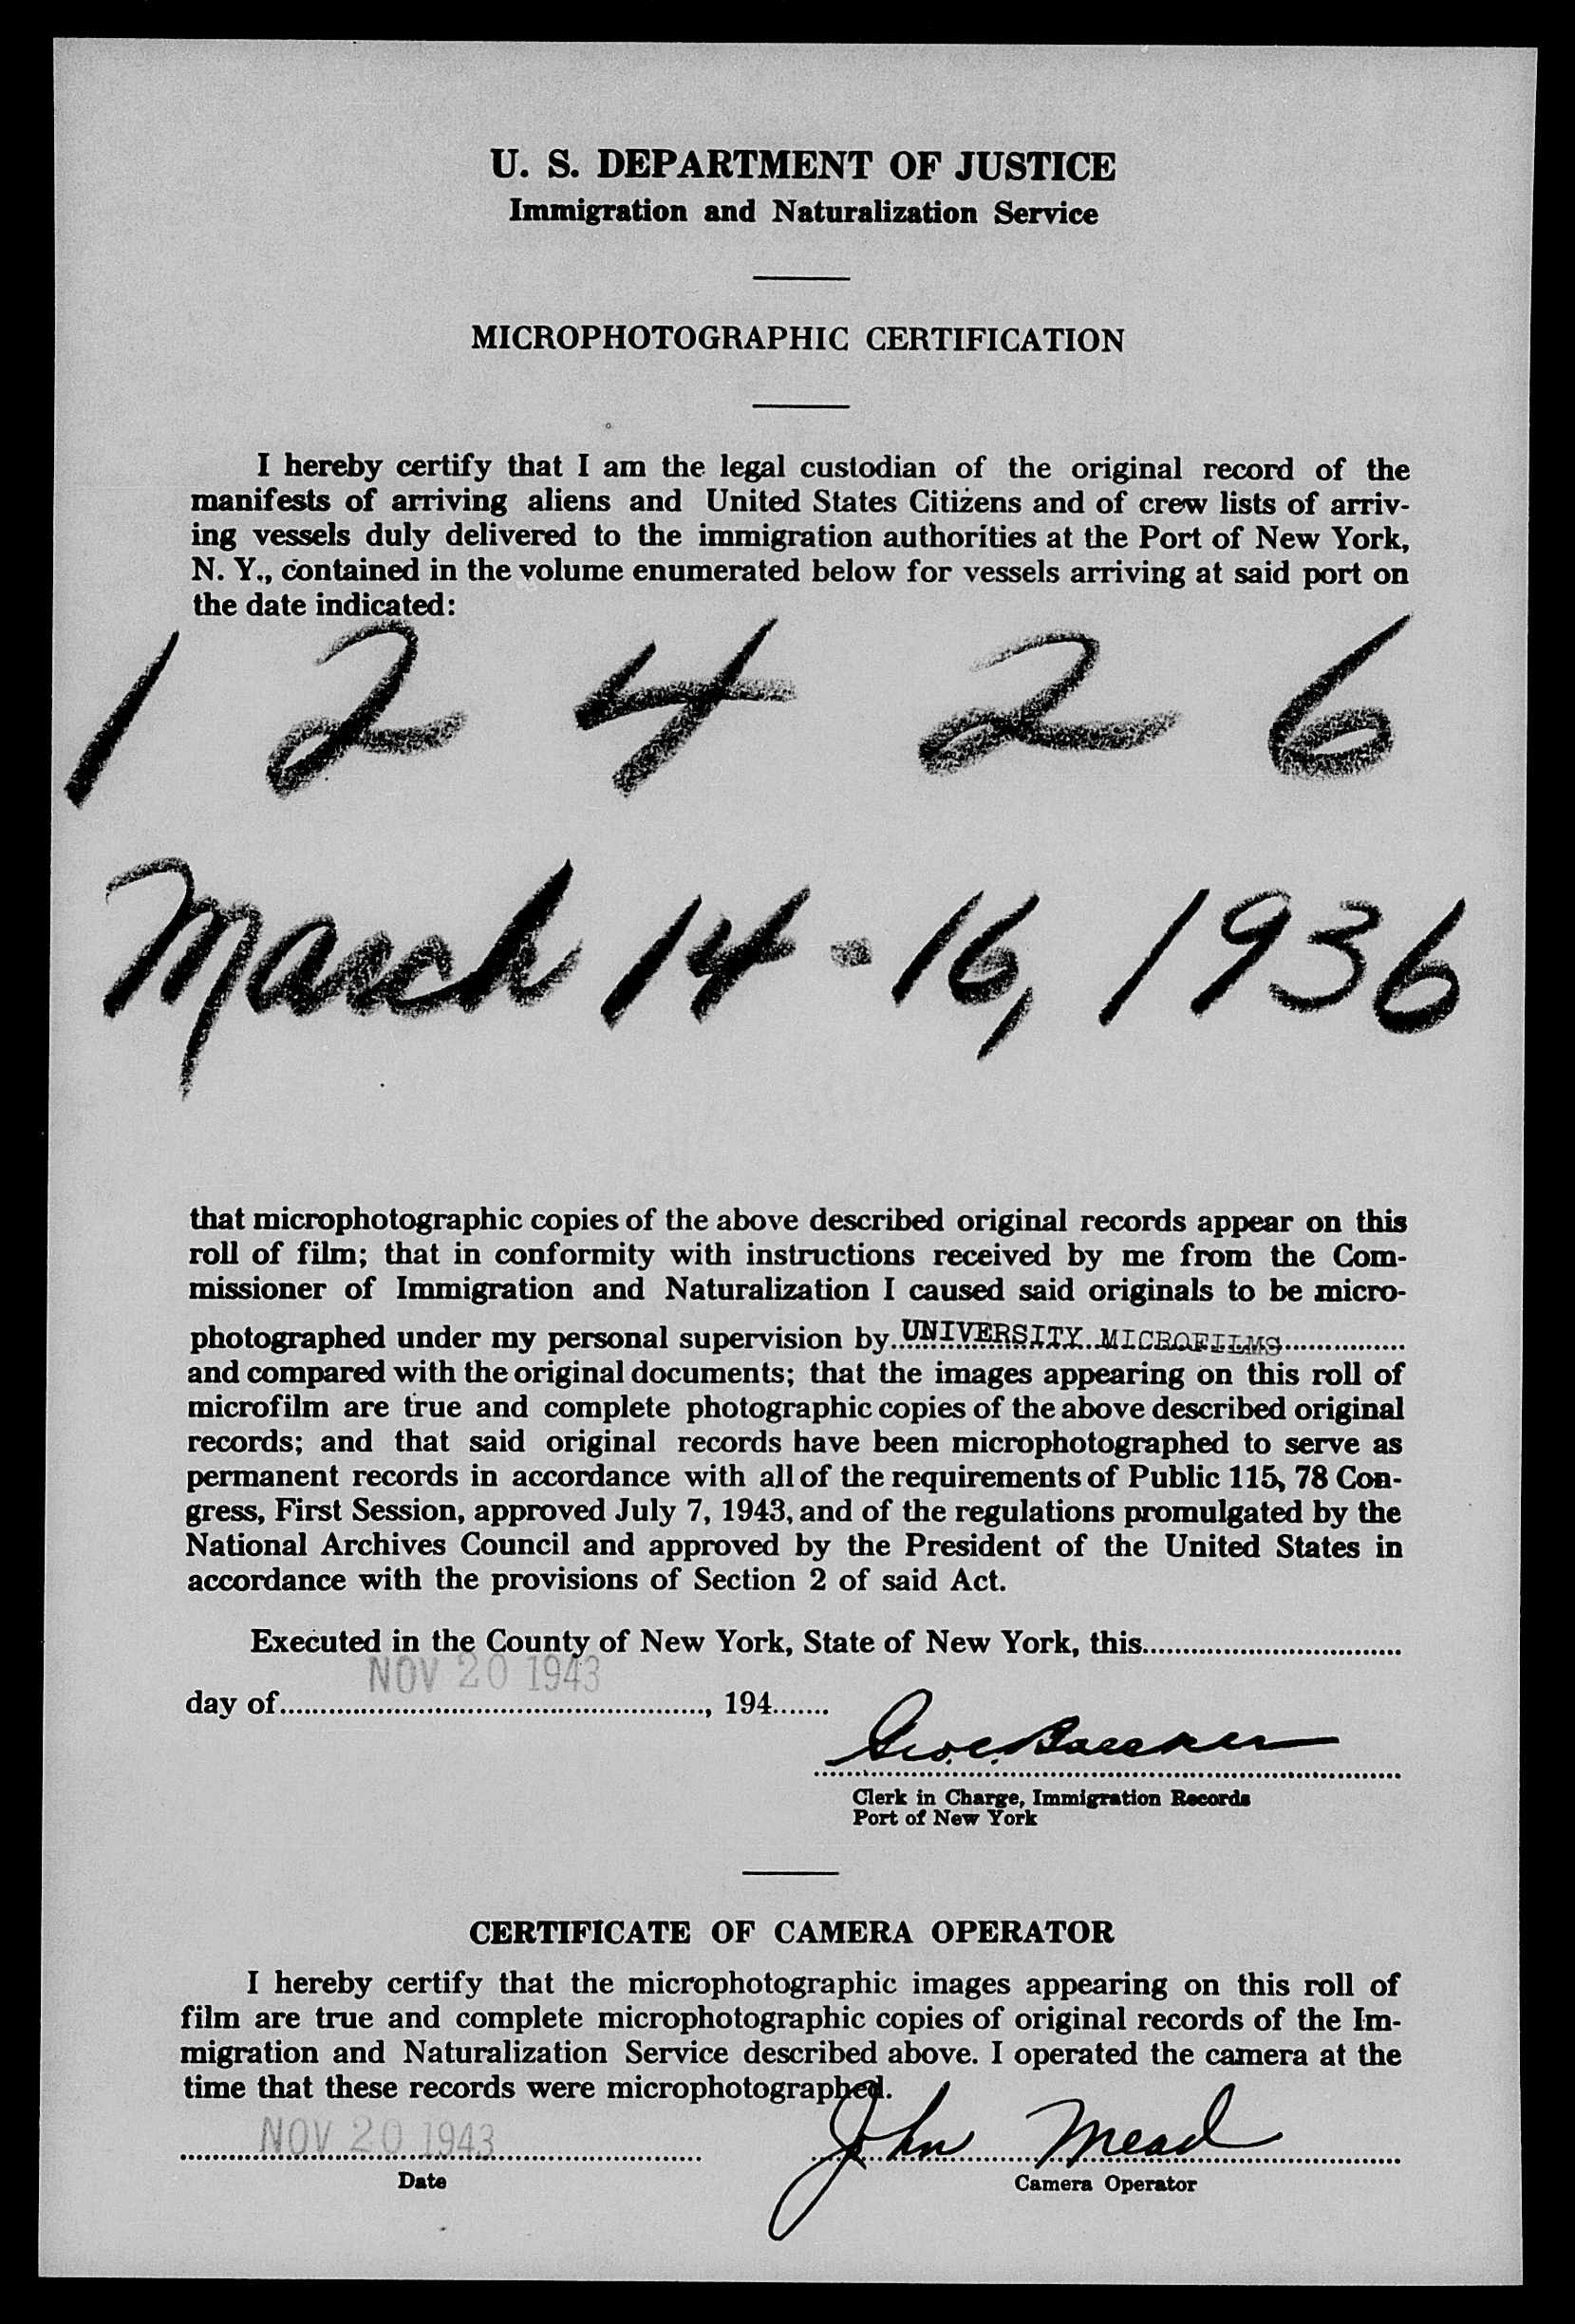 U. S. DEPARTMENT OF JUSTICE
Immigration and Naturalization Service
MICROPHOTOGRAPHIC CERTIFICATION
I hereby certify that I am the legal custodian of the original record of the
manifests of arriving aliens and United States Citizens and of crew lists of arriv-
ing vessels duly delivered to the immigration authorities at the Port of New York,
N. Y., contained in the volume enumerated below for vessels arriving at said port on
the date indicated:
1 2 4 2 6
March 14-16, 1936
that microphotographic copies of the above described original records appear on this
roll of film; that in conformity with instructions received by me from the Com-
missioner of Immigration and Naturalization I caused said originals to be micro-
photographed under my personal supervision by UNIVERSITY MICROFILMS
and compared with the original documents; that the images appearing on this roll of
microfilm are true and complete photographic copies of the above described original
records; and that said original records have been microphotographed to serve as
permanent records in accordance with all of the requirements of Public 115, 78 Con-
gress, First Session, approved July 7, 1943, and of the regulations promulgated by the
National Archives Council and approved by the President of the United States in
accordance with the provisions of Section 2 of said Act.
Executed in the County of New York, State of New York, this
NOV 20 1943
day of , 194
Geo. C.
Clerk in Charge, Immigration Records
Port of New York
CERTIFICATE OF CAMERA OPERATOR
I hereby certify that the microphotographic images appearing on this roll of
film are true and complete microphotographic copies of original records of the Im-
migration and Naturalization Service described above. I operated the camera at the
time that these records were microphotographed.
NOV 20 1943 John Mead
Date Camera Operator